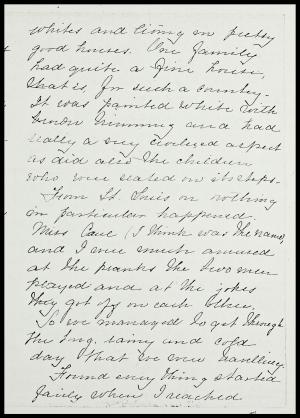 whites and living in pretty
good houses. One family
had quite a fine house,
that is for such a country.
It was painted white with
brown trimming and had
really a very civilized aspect
as did also the children
who were seated on its steps.
From St. Louis on nothing
in particular happened.
Miss Cave (I think was the name)
and I were much amused
at the pranks the two men
played and at the jokes
they got off on each other.
So we managed to get through
the long, rainy and cold
day that we were travelling.
Found every thing started
fairly when I reached